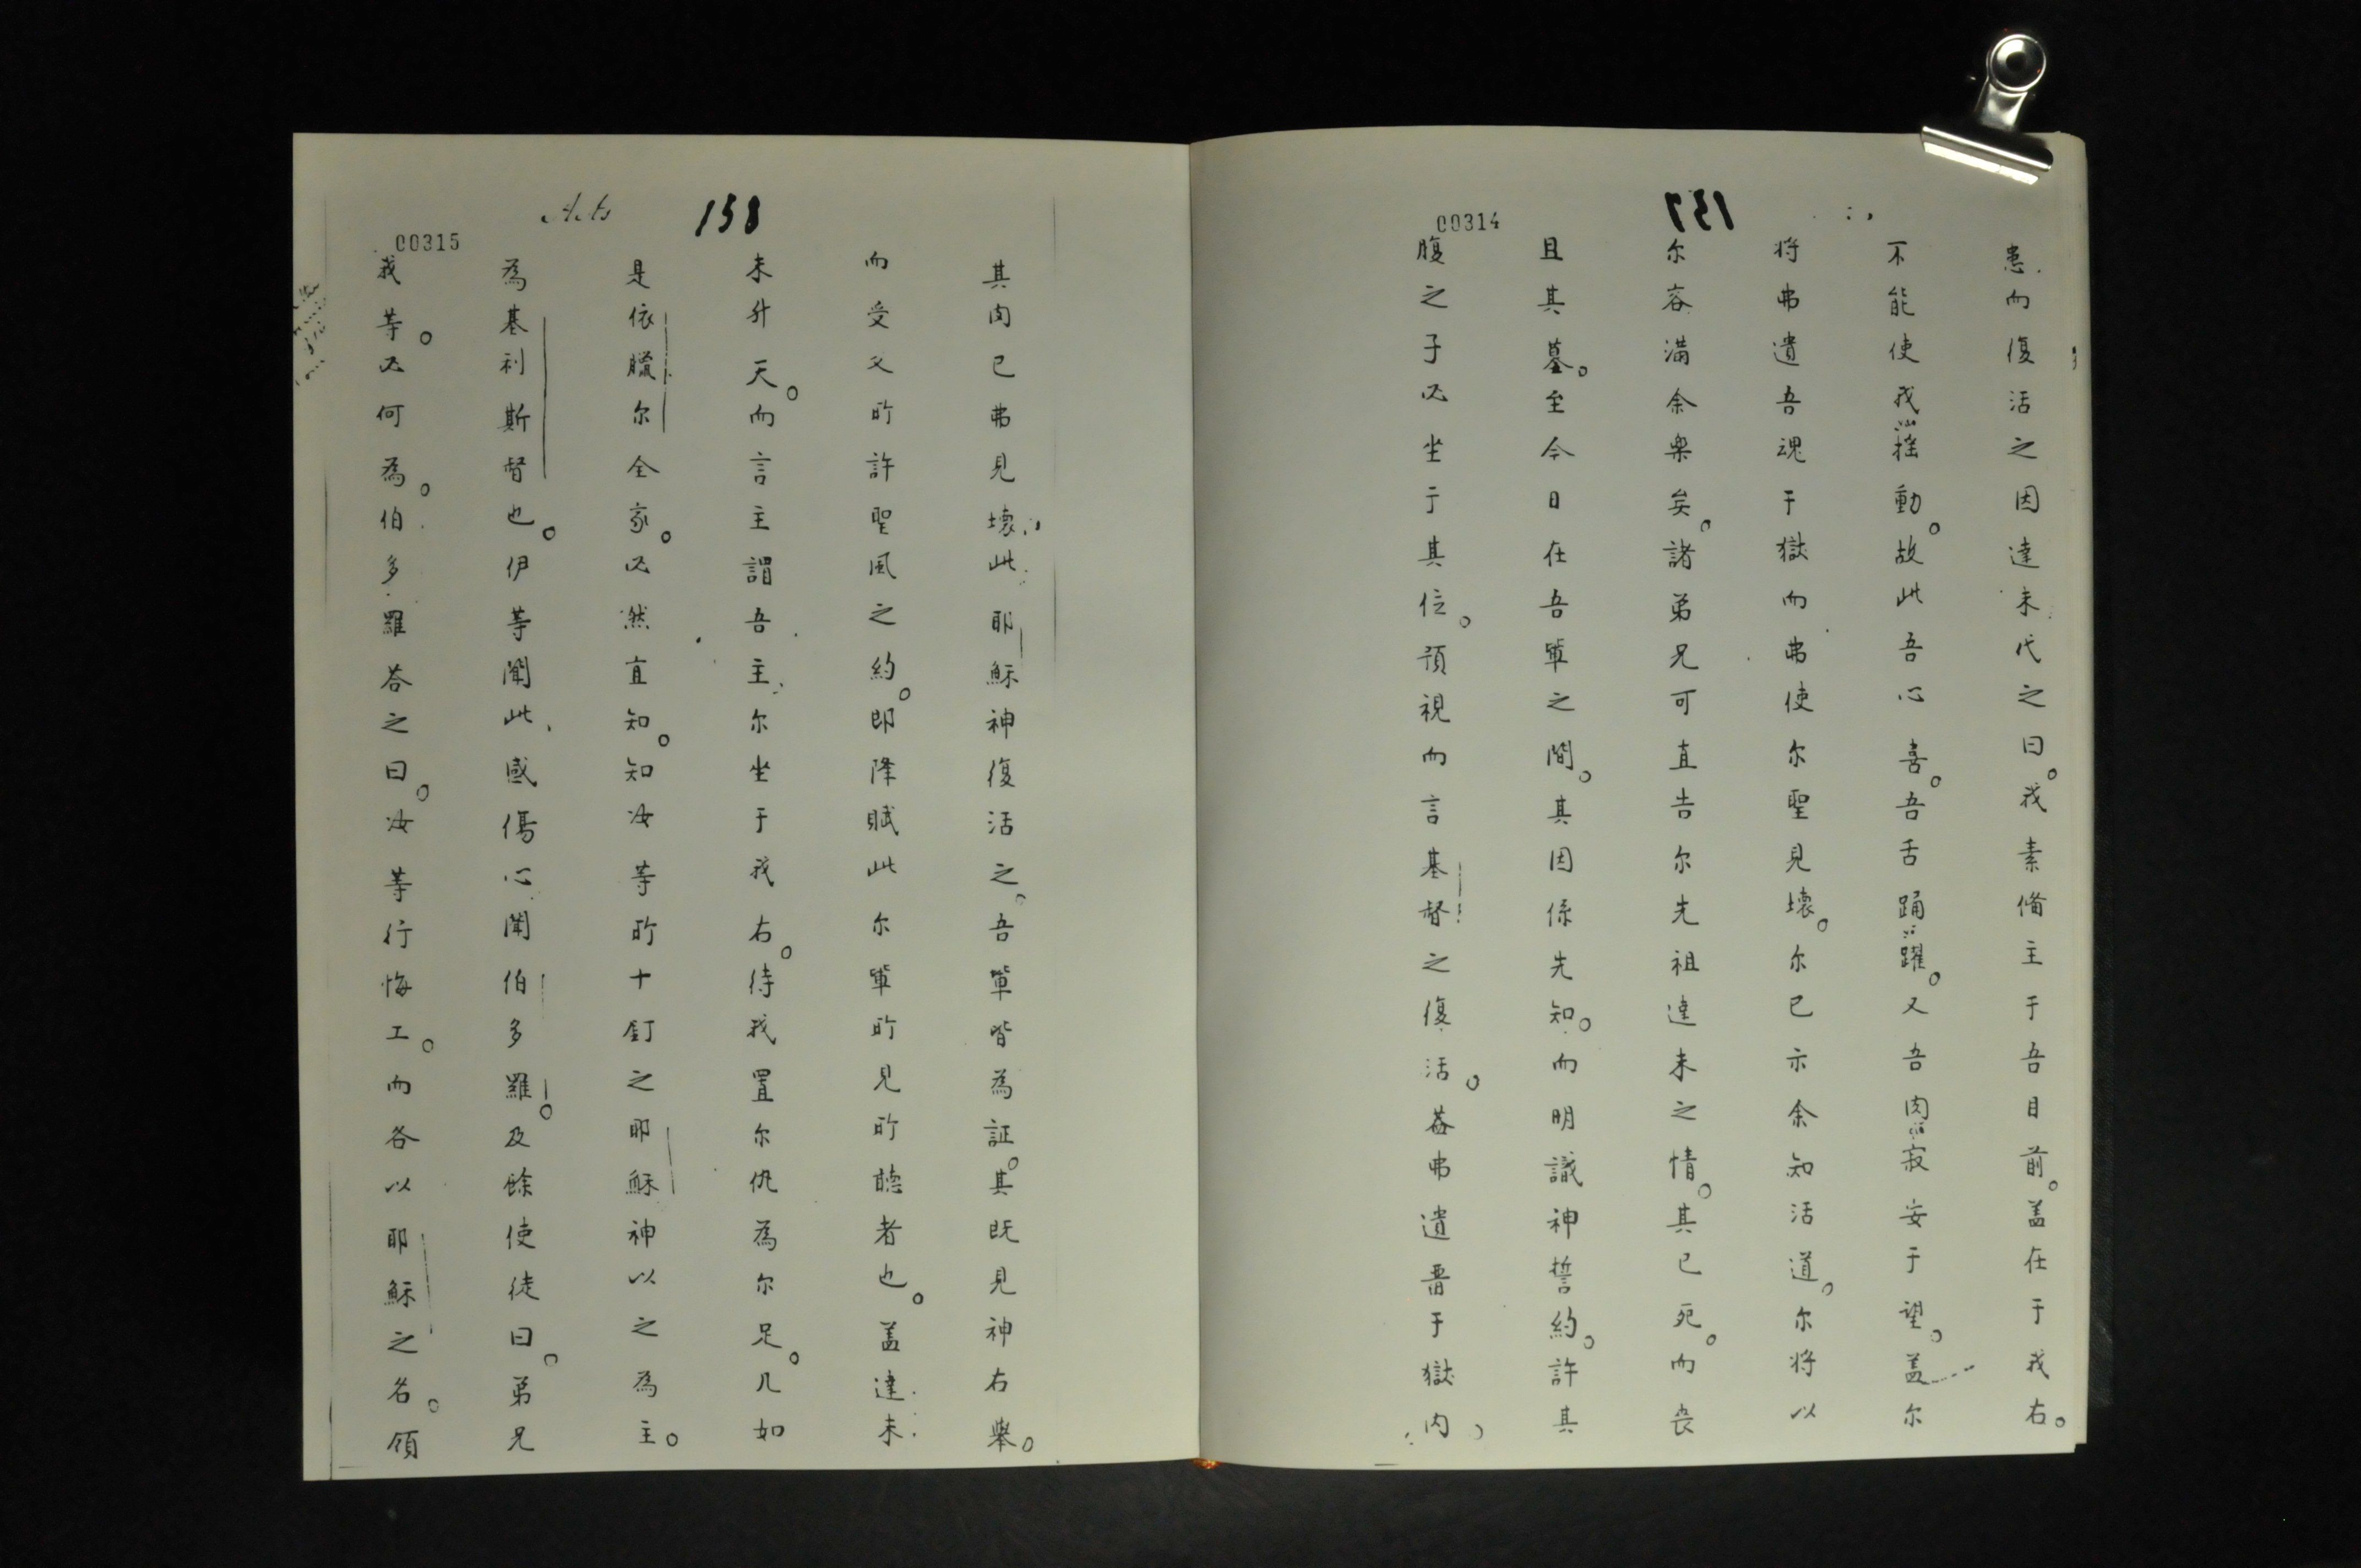 00314
157
患而復活之因達未代之曰。我素偹主于吾目前。盖在于我右。
不能使我揺動。故此吾心喜。吾舌踊躍。又吾肉寂安于望。盖尔
将弗遺吾魂于獄而弗使尔聖見壊。尔已示余知活道。尔将以
尔容満余樂矣。諸弟兄可直告尔先祖達未之情。其已死。而丧
且其墓。至今日在吾軰之間。其因係先知。而明識神誓約。許其
腹之子必坐于其位。預視而言基督之復活。葢弗遺畱于獄内
Acts
158
00315
其肉已弗見壊此耶穌神復活之。吾軰皆為証。其既見神右舉。
而受父所許聖風之約。即降賦此尔軰所見所聴者也。盖達未
未升天。而言主謂吾主尔坐于我右。待我置尔仇為尔足。几如
是依臘尔全家。必然直知。知汝等所十釘之耶穌神以之為主。
為基利斯督也。伊等聞此感傷心聞伯多羅。及餘使徒曰。弟兄
我等。必何為。伯多羅荅之曰。汝等行悔工。而各以耶穌之名。領